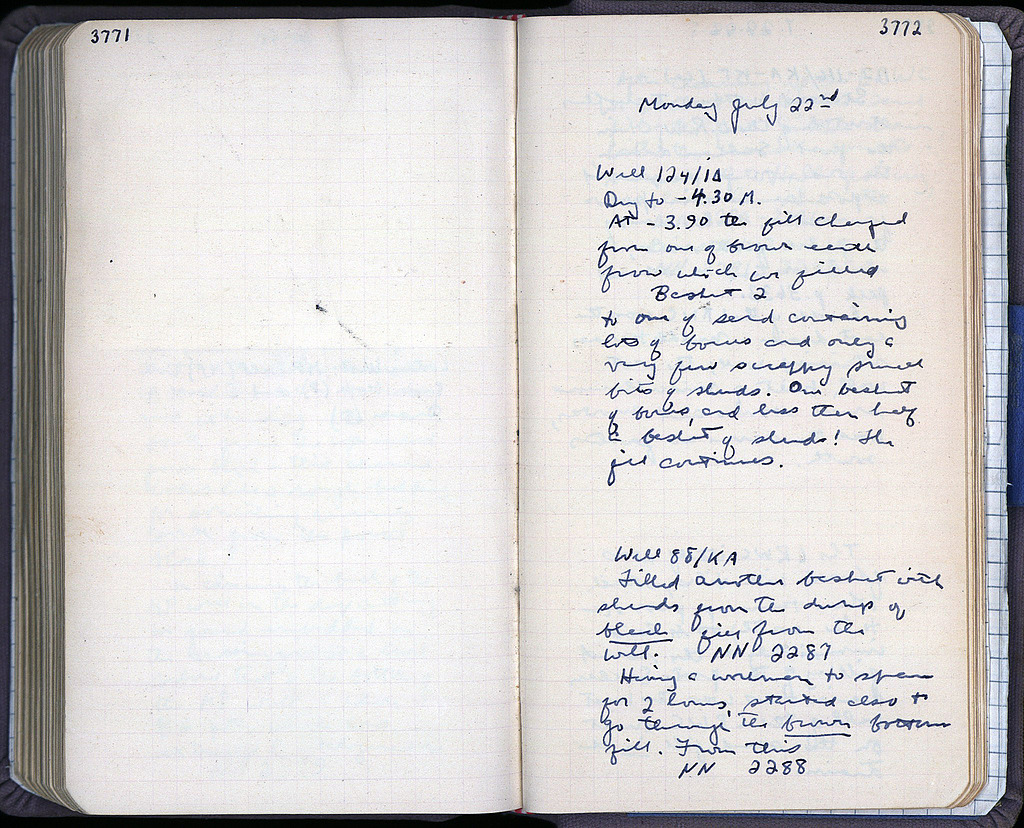 3771
3772
Monday July 22nd
Well 124/1Δ
Dug to -4.30 M.
At -3.90 the fill changed
from one of brown earth
from which we filled
Basket 2
to one of sand containing
lots of bones and only a
very few scrappy small
bits of sherds. One basket
of bones, and less than half
a basket of sherds! The
fill continues.
Well 88/KA
Filled another basket with
sherds from the dump of
black fill from the
well. NN 2287
Having a workman to spare
for 2 hours, started also to
go through the brown bottom
fill. From this
NN 2288